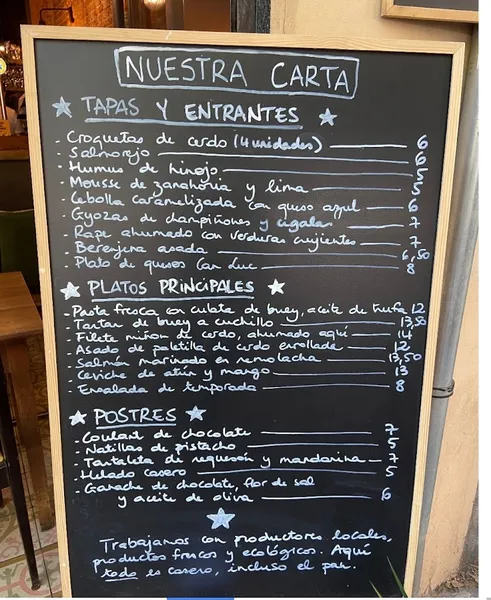 NUESTRA CARTA
TAPAS Y ENTRANTES
- Croquetas de cerdo (4 unidades) 6
- Salmorejo 6
- Humus de hinojo 5
- Mousse de zanahoria y lima 5
- Cebolla caramelizada con queso azul 6
- Gyozas de champiñones y cigalas 7
- Rape ahumado con verduras crujientes 7
- Berenjena asada 6,50
- Plato de quesos Can Luc 8
PLATOS PRINCIPALES
- Pasta fresca con culata de buey, aceite de trufa 12
- Tartar de buey a cuchillo 13,50
- Filete miñon de cerdo, ahumado aquí 14
- Asado de paletilla de cerdo enrollada 12
- Salmón marinado en remolacha 13,50
- Ceviche de atún y mango 13
- Ensalada de temporada 8
POSTRES
- Coulant de chocolate 7
- Natillas de pistacho 5
- Tartaleta de requesón y mandarina 7
- Helado casero 5
- Ganache de chocolate, flor de sal
y aceite de oliva 6
Trabajamos con productores locales,
productos frescos y ecológicos. Aquí
todo es casero, incluso el pan.